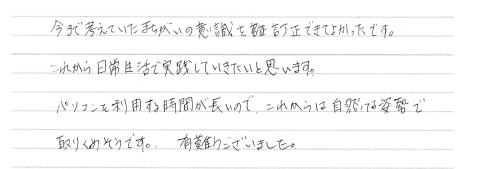 今まで考えていたまちがいの意識を訂正できてよかったです。
これから日常生活で実践していきたいと思います。
パソコンを利用する時間が長いので、これからは自然な姿勢で
取りくめそうです。 有難うございました。